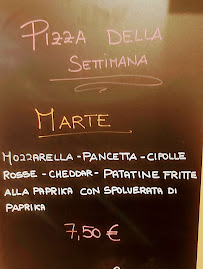 PIZZA DELLA
SETTIMANA
MARTE
MOZZARELLA - PANCETTA - CIPOLLE
ROSSE - CHEDDAR - PATATINE FRITTE
ALLA PAPRIKA CON SPOLVERATA DI
PAPRIKA
7,50 €